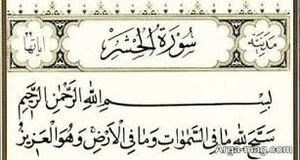 مدنية سورة الحشر آياتها ٢٤
بِسْمِ اللَّهِ الرَّحْمَٰنِ الرَّحِيمِ
سَبَّحَ لِلَّهِ مَا فِي السَّمَٰوَاتِ وَمَا فِي الْأَرْضِ وَهُوَ الْعَزِيزُ
Arga-mag.com